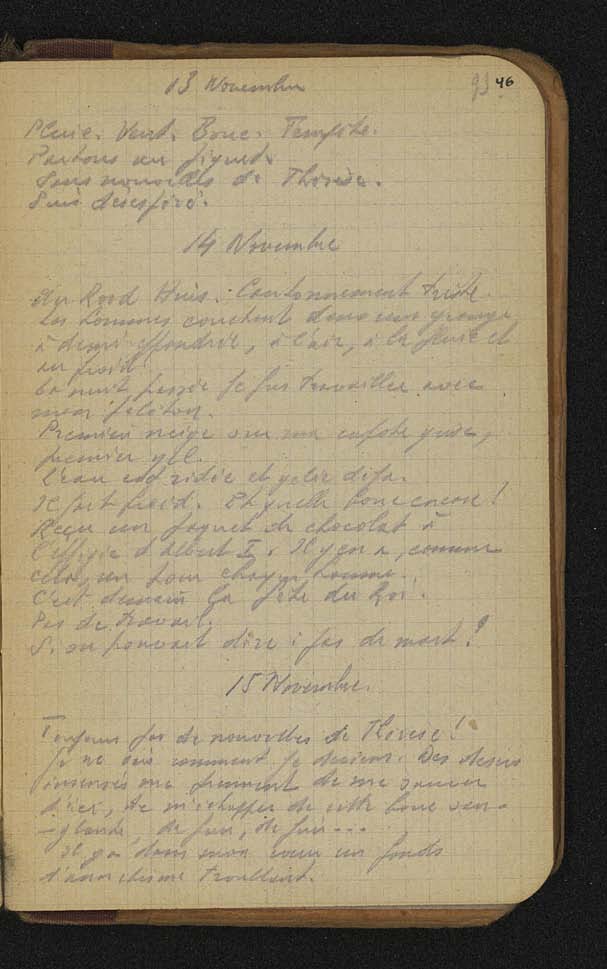 93 46
13 Novembre
Pluie. Vent. Boue. Tempête.
Partons au piquet.
Sans nouvelles de Thérèse.
Suis désespéré.
14 Novembre
Au Rood Huis. Cantonnement triste.
Les hommes couchent dans une grange
à demi effondrée, à l'air, à la pluie et
au froid.
La nuit passée je fus travailler avec
mon peloton.
Première neige sur ma capote grise,
premier gel.
L'eau est ridée et gelée déjà.
Il fait froid. Et quelle boue encore!
Reçu un paquet de chocolat à
l'effigie d'Albert I. Il y en a, comme
cela, un pour chaque homme.
C'est demain la fête du Roi.
Pas de travail.
Si on pouvait dire: pas de mort!
15 Novembre.
Toujours pas de nouvelles de Thérèse!
Je ne sais comment je deviens. Des désirs
insensés me prennent de me sauver
d'ici, de m'échapper de cette boue san-
-glante, de fuir, de fuir...
Il y a dans mon cœur un fonds
d'anarchisme troublant.